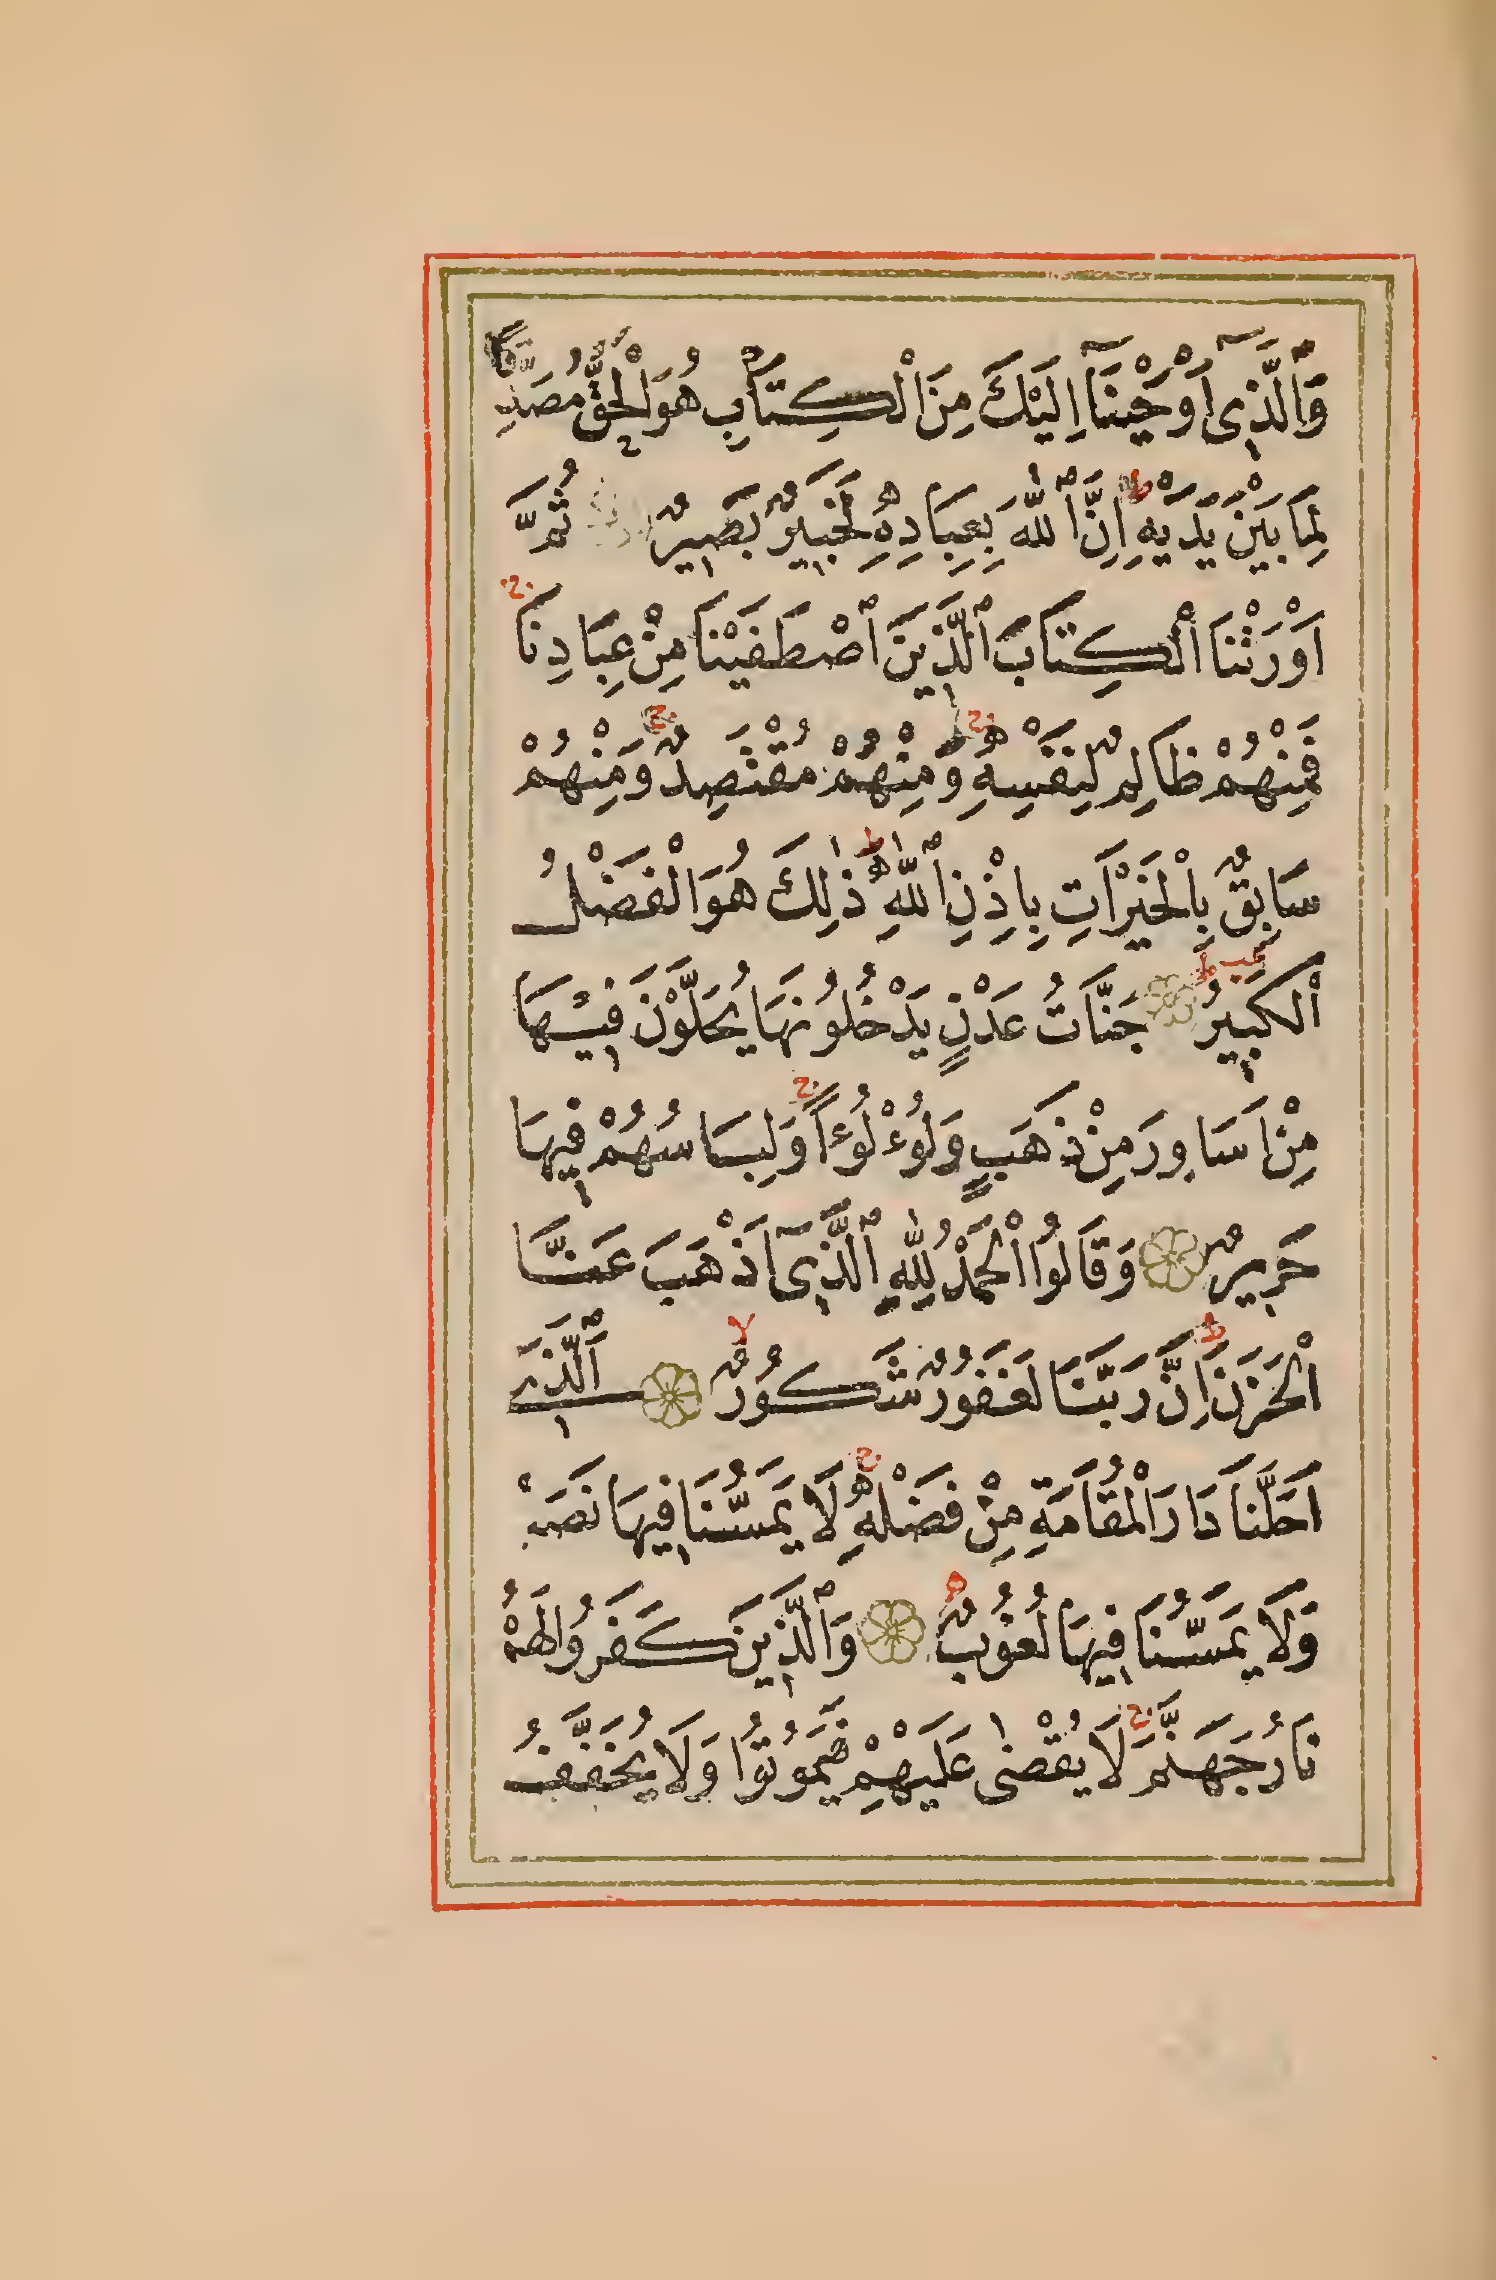 وَالَّذِي أَوْحَيْنَا اِلَيْكَ مِنَ الْكِتَابِ هُوَ الْحَقُّ مُصَدِّقًا
لِمَا بَيْنَ يَدَيْهِ ط اِنَّ اللّٰهَ بِعِبَادِهِ لَخَبِيرٌ بَصِيرٌ ثُمَّ
اَوْرَثْنَا الْكِتَابَ الَّذِينَ اصْطَفَيْنَا مِنْ عِبَادِنَا ج
فَمِنْهُمْ ظَالِمٌ لِنَفْسِهِ ج وَمِنْهُمْ مُقْتَصِدٌ ج وَمِنْهُمْ
سَابِقٌ بِالْخَيْرَاتِ بِاِذْنِ اللّٰهِ ط ذٰلِكَ هُوَ الْفَضْلُ
الْكَبِيرُ ط جَنَّاتُ عَدْنٍ يَدْخُلُونَهَا يُحَلَّوْنَ فِيهَا
مِنْ اَسَاوِرَ مِنْ ذَهَبٍ وَلُوءْلُوءًا ج وَلِبَاسُهُمْ فِيهَا
حَرِيرٌ وَقَالُوا الْحَمْدُ لِلّٰهِ الَّذِي اَذْهَبَ عَنَّا
الْحَزَنَ ط اِنَّ رَبَّنَا لَغَفُورٌ شَكُورٌ لا الَّذِي
اَحَلَّنَا دَارَ الْمُقَامَةِ مِنْ فَضْلِهِ ج لَا يَمَسُّنَا فِيهَا نَصَبٌ
وَلَا يَمَسُّنَا فِيهَا لُغُوبٌ وَالَّذِينَ كَفَرُوا لَهُمْ
نَارُ جَهَنَّمَ ج لَا يُقْضٰى عَلَيْهِمْ فَيَمُوتُوا وَلَا يُخَفَّفُ